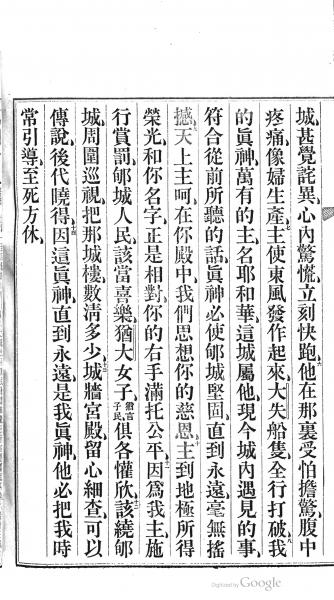 城甚覺詫異心內驚慌立刻快跑他在那裏受怕擔驚腹中
疼痛像婦生產七主使東風發作起來大失船隻全行打破八我
的眞神萬有的主名耶和華這城屬他現今城內遇見的事
符合從前所聽的話眞神必使郇城堅固直到永遠毫無搖
撼天上主呵在你殿中我們思想你的慈恩主到地極所得
榮光和你名字正是相對你的右手滿托公平因爲我主施
行賞罰郇城人民該當喜樂猶大女子猶言子民俱各懽欣該繞郇
城周圍巡視把那城樓數淸多少城牆宮殿留心細查可以
傳說後代曉得十四因這眞神直到永遠是我眞神他必把我時
常引導至死方休
Digitized by Google